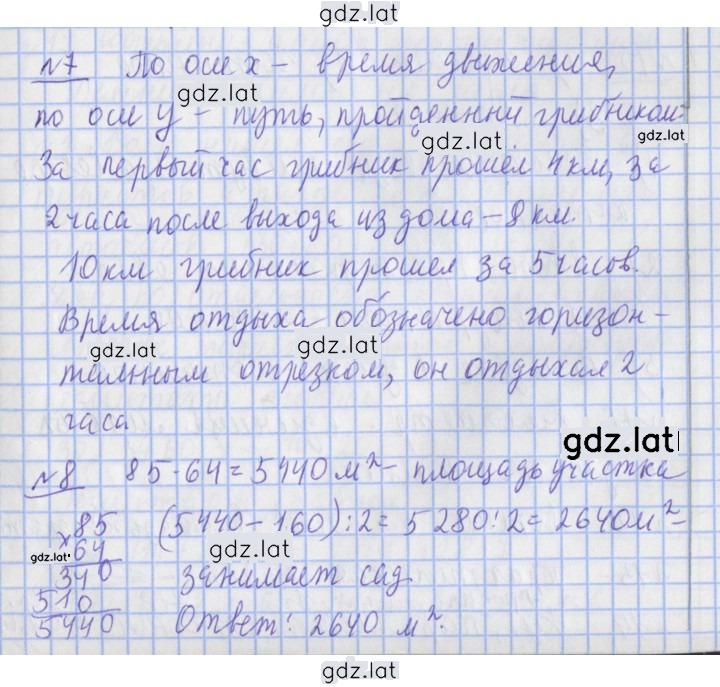 gdz.lat
№7 По оси х - время движения,
gdz.lat
по оси у - путь, пройденный грибником.
gdz.lat
gdz.lat
За первый час грибник прошёл 4 км, за
2 часа после выхода из дома - 8 км.
10 км грибник прошел за 5 часов.
Время отдыха обозначено горизон-
gdz.lat
gdz.lat
тальным отрезком, он отдыхал 2
часа
gdz.lat
№8 85·64=5440 м²- площадь участка
85 (5440-160):2=5280:2=2640м²-
×64
gdz.lat
gdz.lat
340 занимает сад
510
5440 Ответ: 2640 м².
gdz.lat